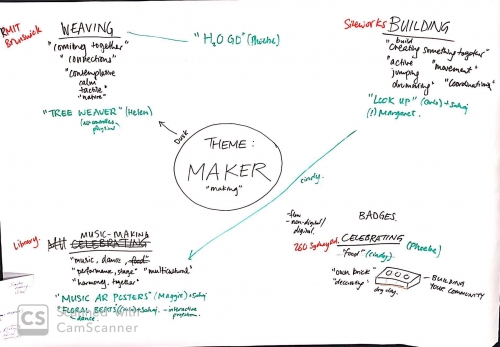 RMIT
Brunswick
WEAVING
"coming together"
"connections"
"contemplative
calm
tactile"
"nature"
"H2O GO" (Phoebe)
"TREE WEAVER" (Helen)
Siteworks
BUILDING
"build
Creating something together"
"active "movement"
jumping
drumming" "Coordinating"
"LOOK UP"
(?) Margaret.
Dusk
THEME:
MAKER
"making"
cindy.
Library.
MUSIC-MAKING
CELEBRATING
"music, dance, food"
"performance, stage" "multicultural"
"harmony, together"
"MUSIC AR POSTERS" (Maggie)
"FLORAL BEATS"
- interactive
projection
- dance.
- non-digital/
digital.
BADGES.
260 Sydney Rd.
CELEBRATING
"food" (cindy)
(Phoebe)
"own brick"
"decorating"
dry clay.
BUILDING
YOUR COMMUNITY
CS Scanned with
CamScanner